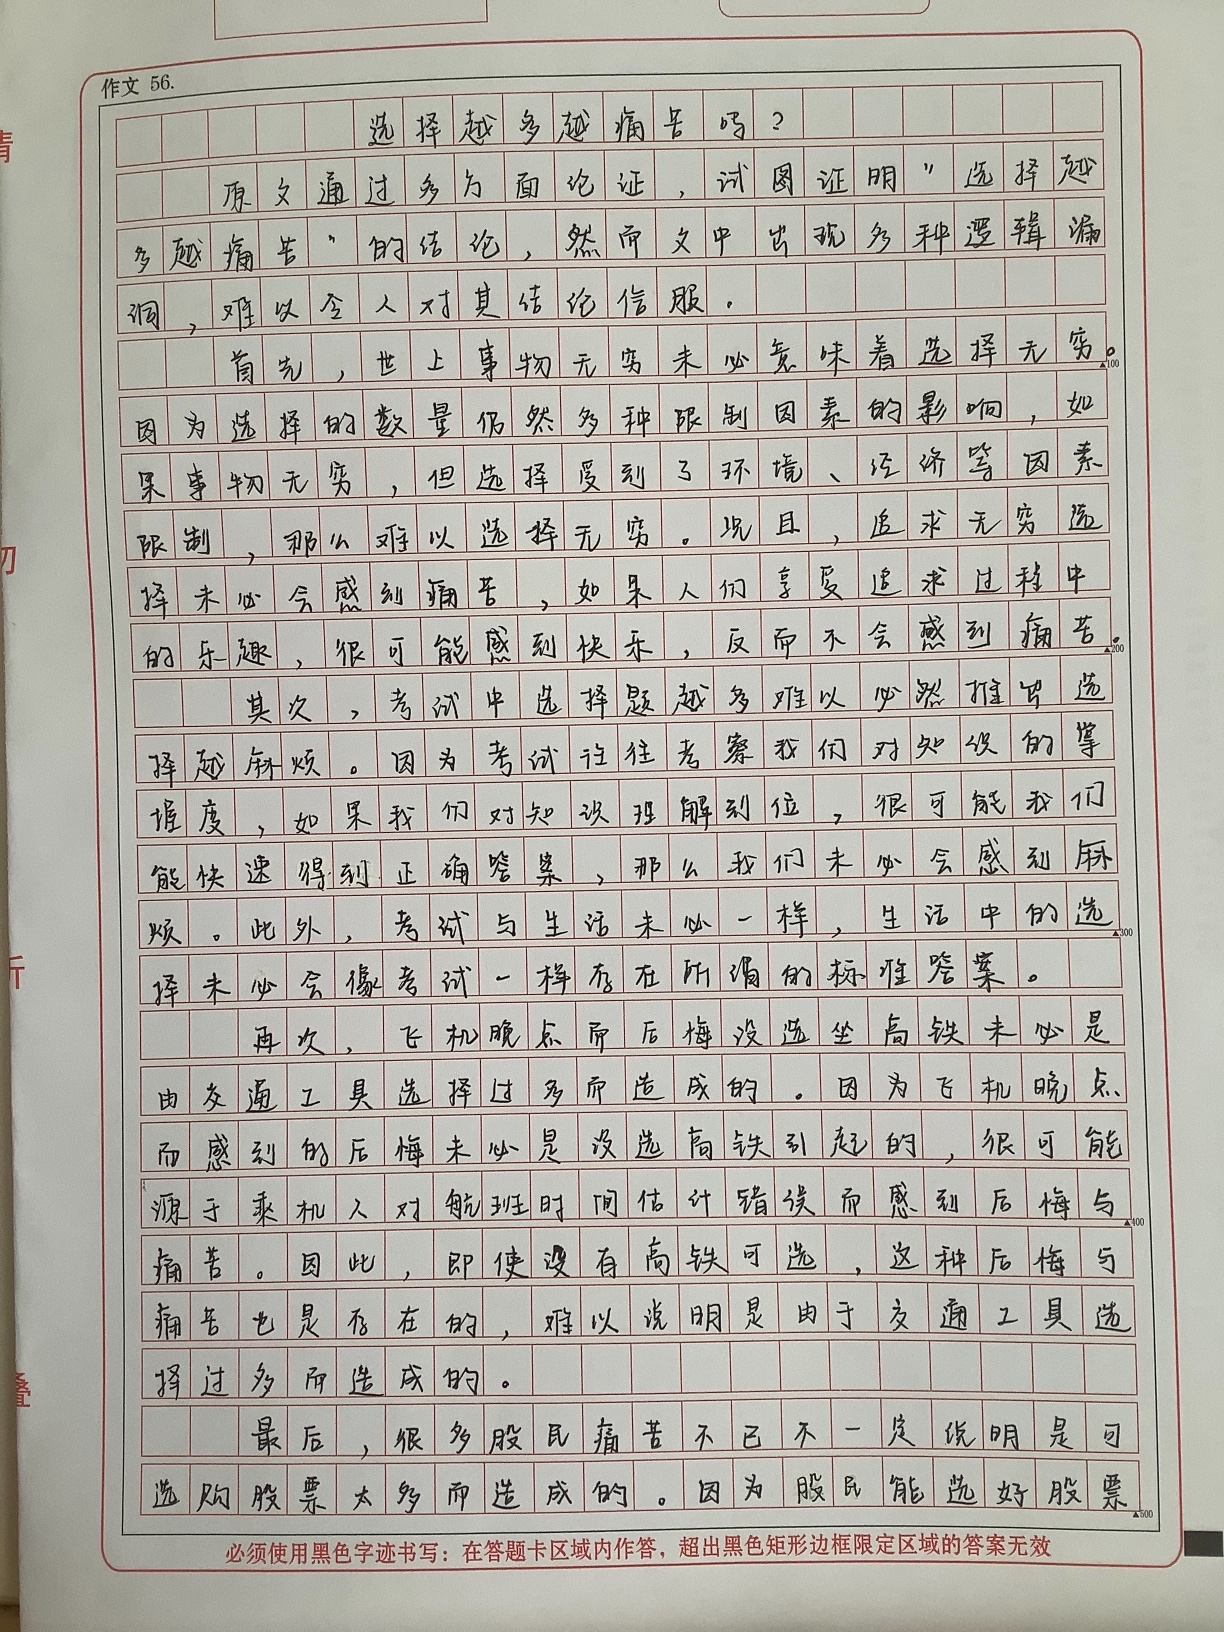 作文 56.
选择越多越痛苦吗?
原文通过多方面论证,试图证明"选择越
多越痛苦"的结论,然而文中出现多种逻辑漏
洞,难以令人对其结论信服。
首先,世上事物无穷未必意味着选择无穷。
▲100
因为选择的数量仍然多种限制因素的影响,如
果事物无穷,但选择受到了环境、经济等因素
限制,那么难以选择无穷。况且,追求无穷选
择未必会感到痛苦,如果人们享受追求过程中
的乐趣,很可能感到快乐,反而不会感到痛苦。
▲200
其次,考试中选择题越多难以必然推出选
择越麻烦。因为考试往往考察我们对知识的掌
握度,如果我们对知识理解到位,很可能我们
能快速得到正确答案,那么我们未必会感到麻
烦。此外,考试与生活未必一样,生活中的选
▲300
择未必会像考试一样存在所谓的标准答案。
再次,飞机晚点而后悔没选坐高铁未必是
由交通工具选择过多而造成的。因为飞机晚点
而感到的后悔未必是没选高铁引起的,很可能
源于乘机人对航班时间估计错误而感到后悔与
▲400
痛苦。因此,即使没有高铁可选,这种后悔与
痛苦也是存在的,难以说明是由于交通工具选
择过多而造成的。
最后,很多股民痛苦不已不一定说明是可
选购股票太多而造成的。因为股民能选好股票
▲500
必须使用黑色字迹书写:在答题卡区域内作答,超出黑色矩形边框限定区域的答案无效